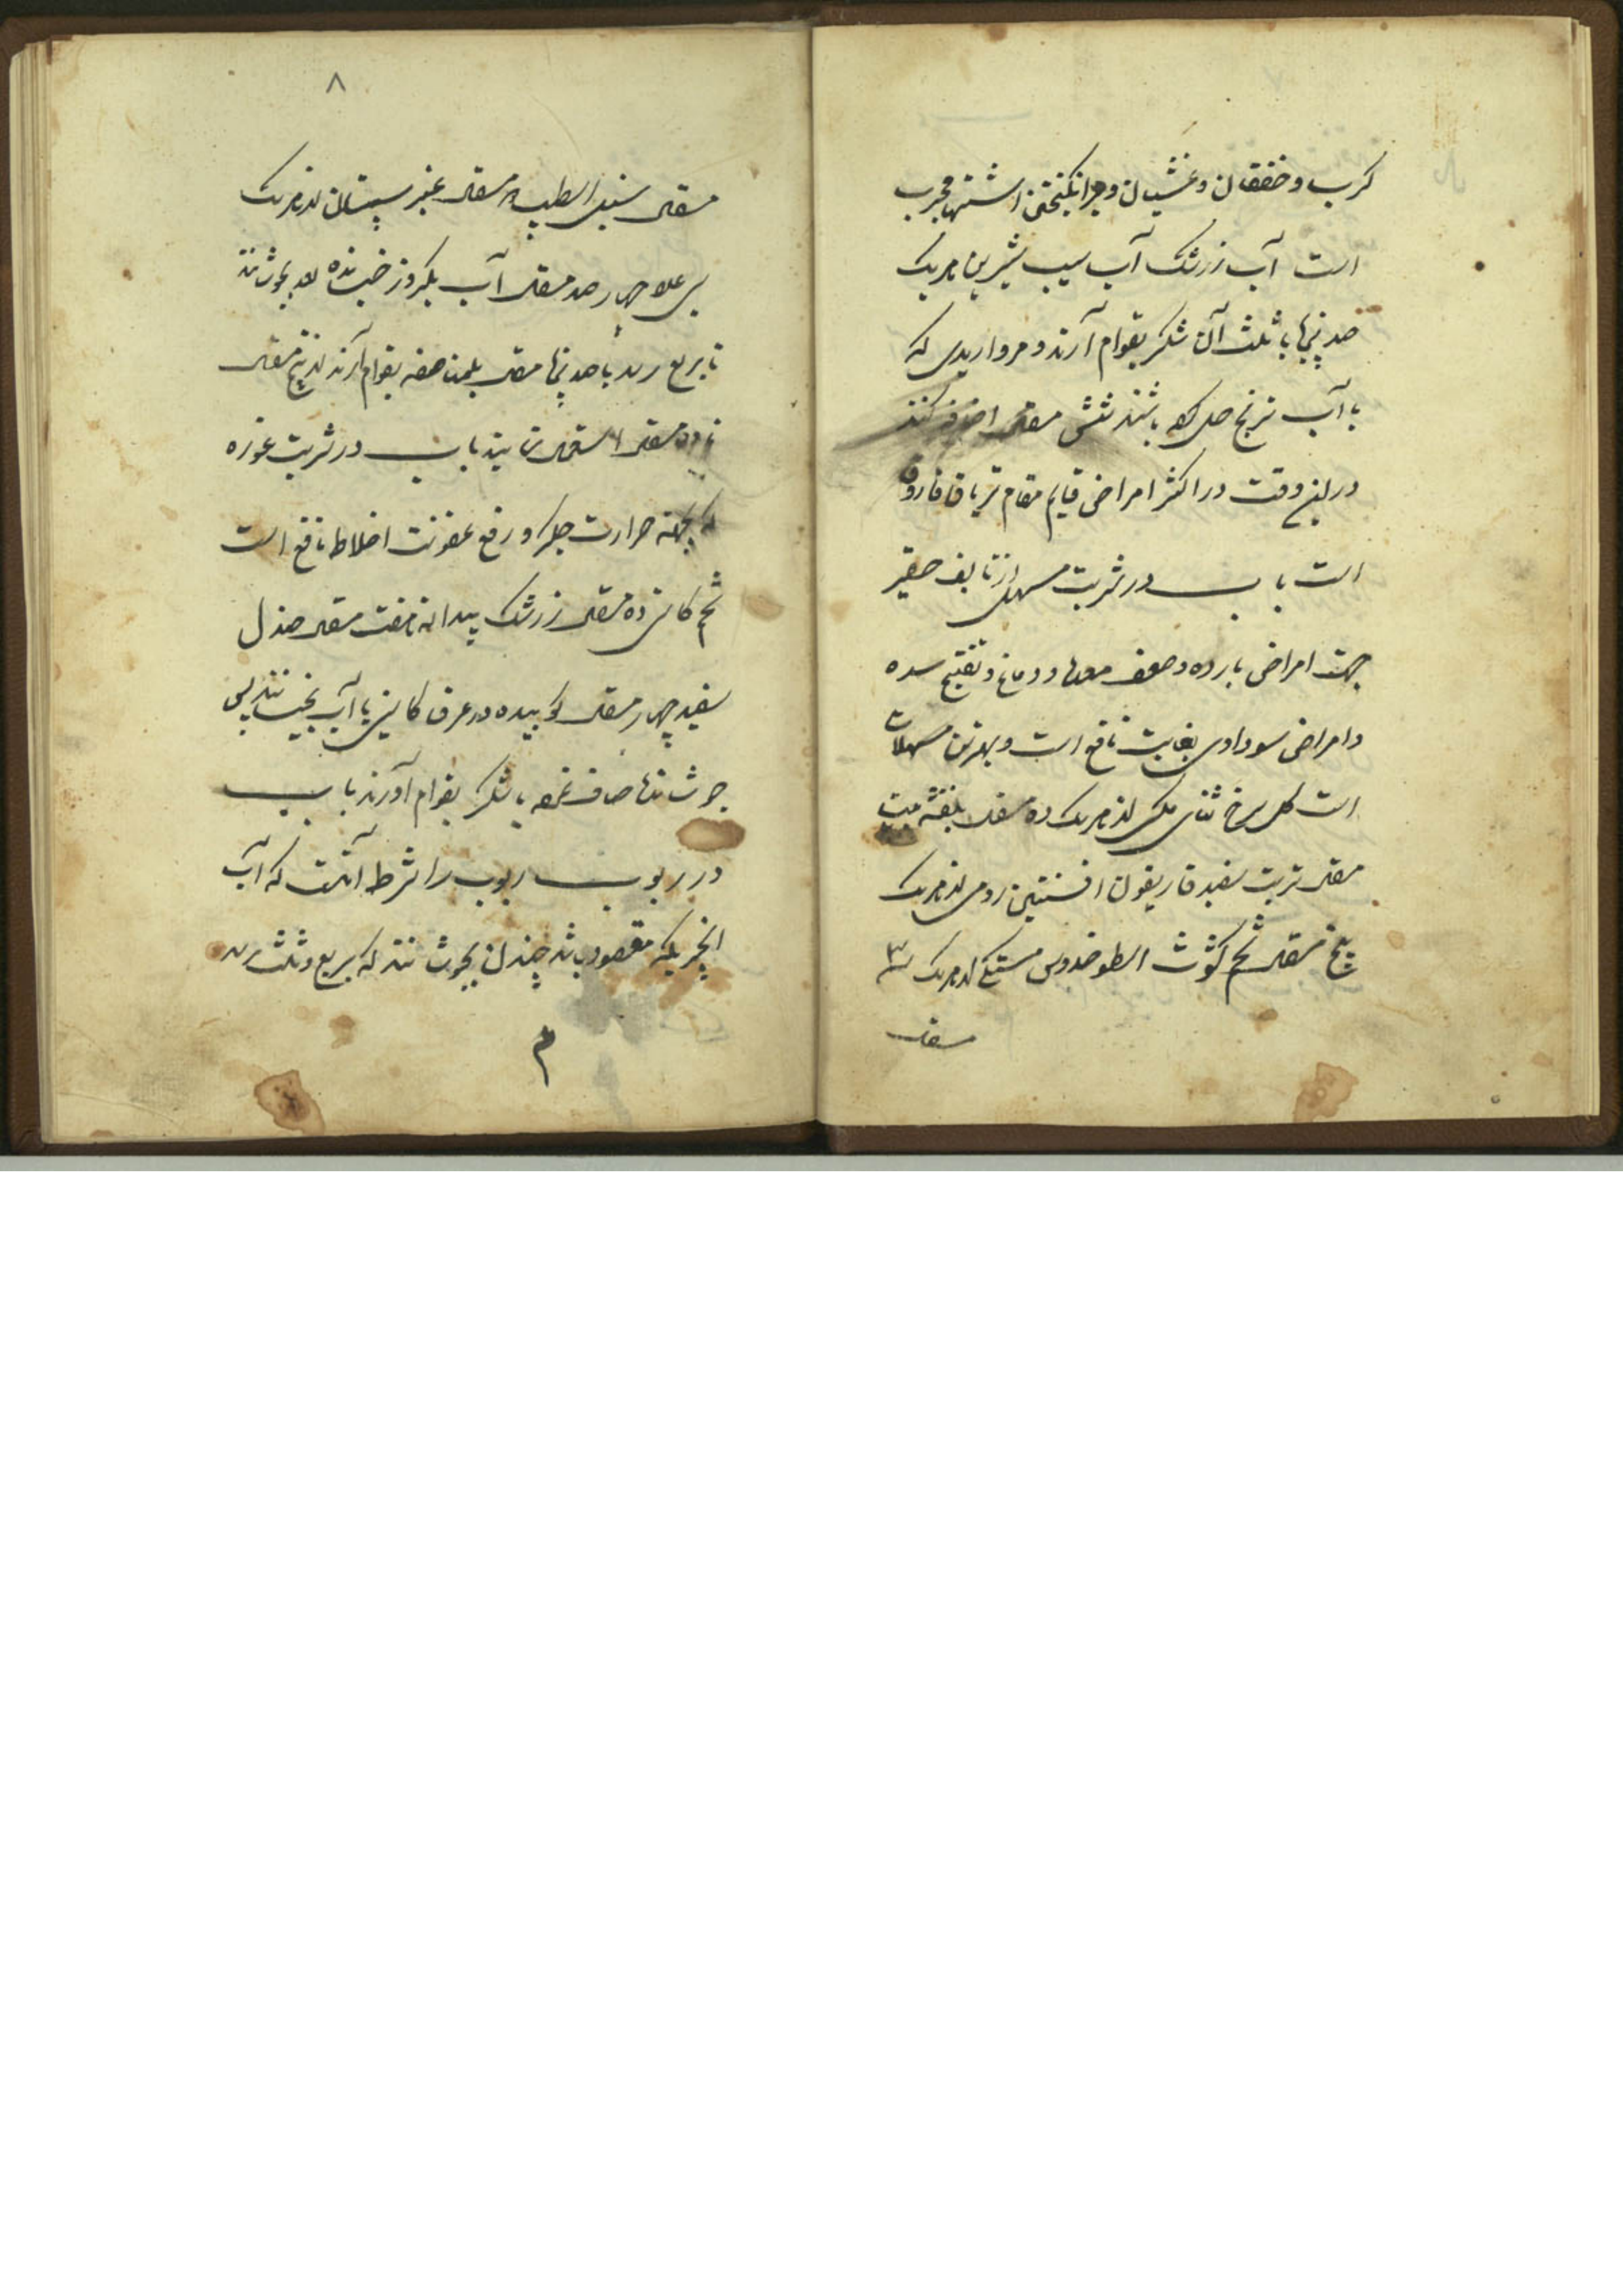 کرب و خفقان و غشیان و برانگیختن اشتها مجرب
است آب زرشک آب سیب شیرین هریک
صد پنجاه با ثلث آن شکر بقوام آرند و مرواریدی که
با آب ترنج حل کرده باشند شش مثقال اضافه کنند
در این وقت در اکثر امراض قایم مقام تریاق فاروق
است باب در شربت مسهل از تالیف حقیر
جهت امراض بارده و ضعف معده و دماغ و تفتیح سده
و امراض سوداوی بغایت نافع است و بهترین مسهلات
است گل سرخ سنای مکی از هریک ده مثقال بنفشه بیست
مثقال تربت سفید غاریقون افسنتین رومی از هریک
پنج مثقال تخم کثوث اسطوخدوس مصطکی از هریک
مثقال
۸
مثقال سنبل الطیب مثقال سپستان از هریک
عدد چهارصد مثقال آب یکروز خیسانده بجوشانند
تا بربع رسد با صد پنجاه مثقال بقوام آرند پنج مثقال
تا ده مثقال باب در شربت غوره
که بجهة حرارت جگر و رفع عفونت اخلاط نافع است
تخم کاسنی ده مثقال زرشک بیدانه هفت مثقال صندل
سفید چهار مثقال کوبیده در عرق کاسنی با آب بخیسانند پس
جوشانده صاف نموده با شکر بقوام آورند باب
در ربوب ربوب را شرط آنست که آب
انچزیکه مقصود باشد چندان بجوشانند که بربع و ثلث رسد
م